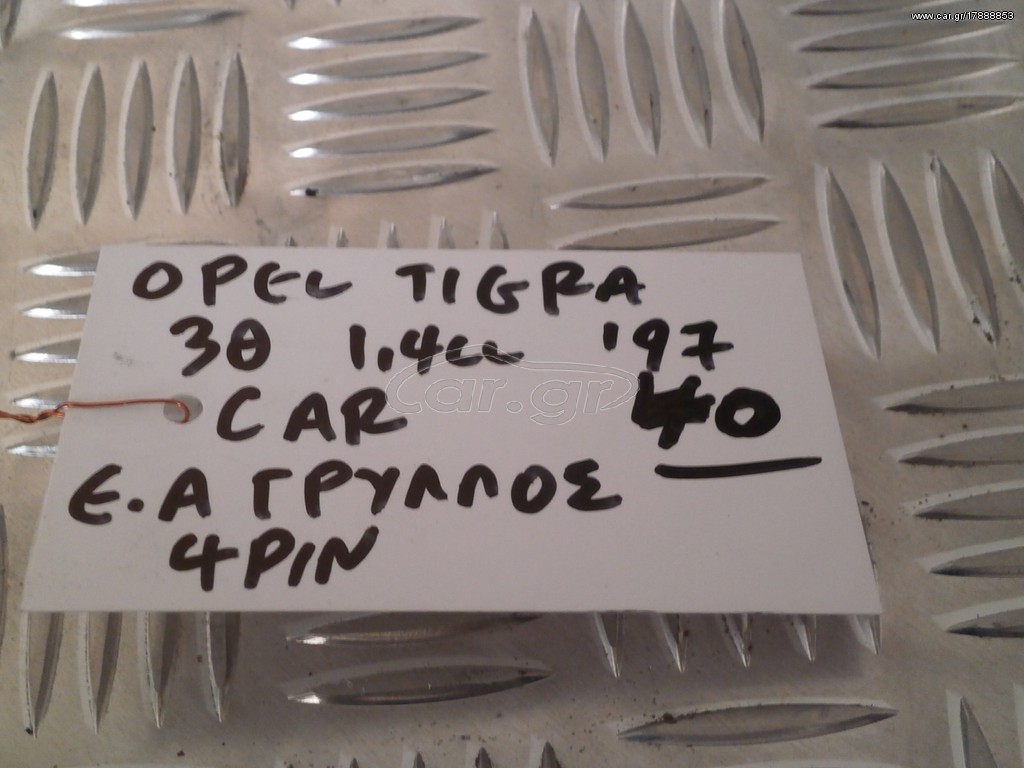 www.car.gr/17888853
OPEL TIGRA
3θ 1,4cc '97
CAR 40
car.gr
Ε.Α ΓΡΥΛΛΟΣ
4 PIN